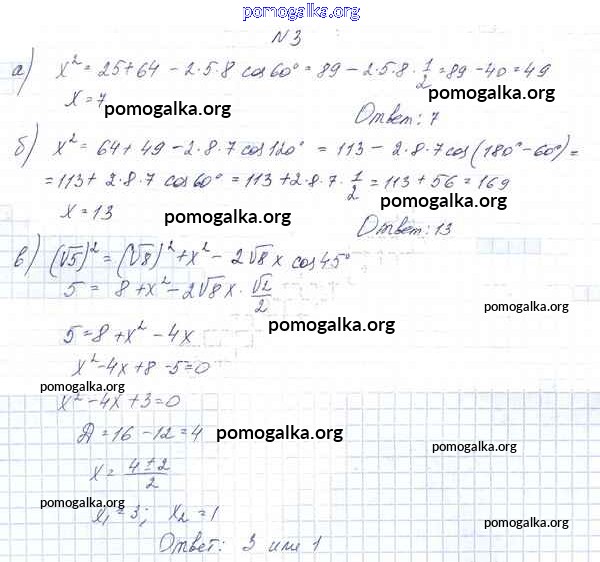 pomogalka.org
N 3
а) x² = 25 + 64 - 2·5·8 cos 60° = 89 - 2·5·8·1/2 = 89 - 40 = 49
x = 7 pomogalka.org pomogalka.org
Ответ: 7
б) x² = 64 + 49 - 2·8·7 cos 120° = 113 - 2·8·7 cos(180° - 60°) =
= 113 + 2·8·7 cos 60° = 113 + 2·8·7·1/2 = 113 + 56 = 169
x = 13 pomogalka.org pomogalka.org
Ответ: 13
в) (√5)² = (√8)² + x² - 2√8 x cos 45°
5 = 8 + x² - 2√8 x · √2/2
pomogalka.org
5 = 8 + x² - 4x pomogalka.org
x² - 4x + 8 - 5 = 0
pomogalka.org pomogalka.org
x² - 4x + 3 = 0
Д = 16 - 12 = 4 pomogalka.org
pomogalka.org
x = (4 ± 2)/2
pomogalka.org
x₁ = 3; x₂ = 1
pomogalka.org
Ответ: 3 или 1